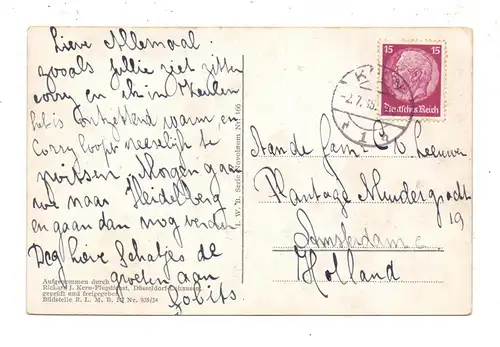 Lieve Allemaal.
zooals jullie ziet zitten
corry en ik in Keulen
het is ontzettend warm, en
Corry loopt vreeselijk te
Morgen gaan
we naar Heidelberg
en gaan dan nog verder
Dag Lieve Schatjes de
groeten aan
Aufgenommen durch
Richard J. Kern-Flugdienst, Düsseldorf-Lohausen
geprüft und freigegeben
Bildstelle R. L. M. B. III Nr. 935/34
I. W. B. Serie Nr. 166
15 15
Deutsches Reich
-2.7.
Aan de Fam. Leeuwen
Plantage Muidergracht
19
Amsterdam c.
Holland